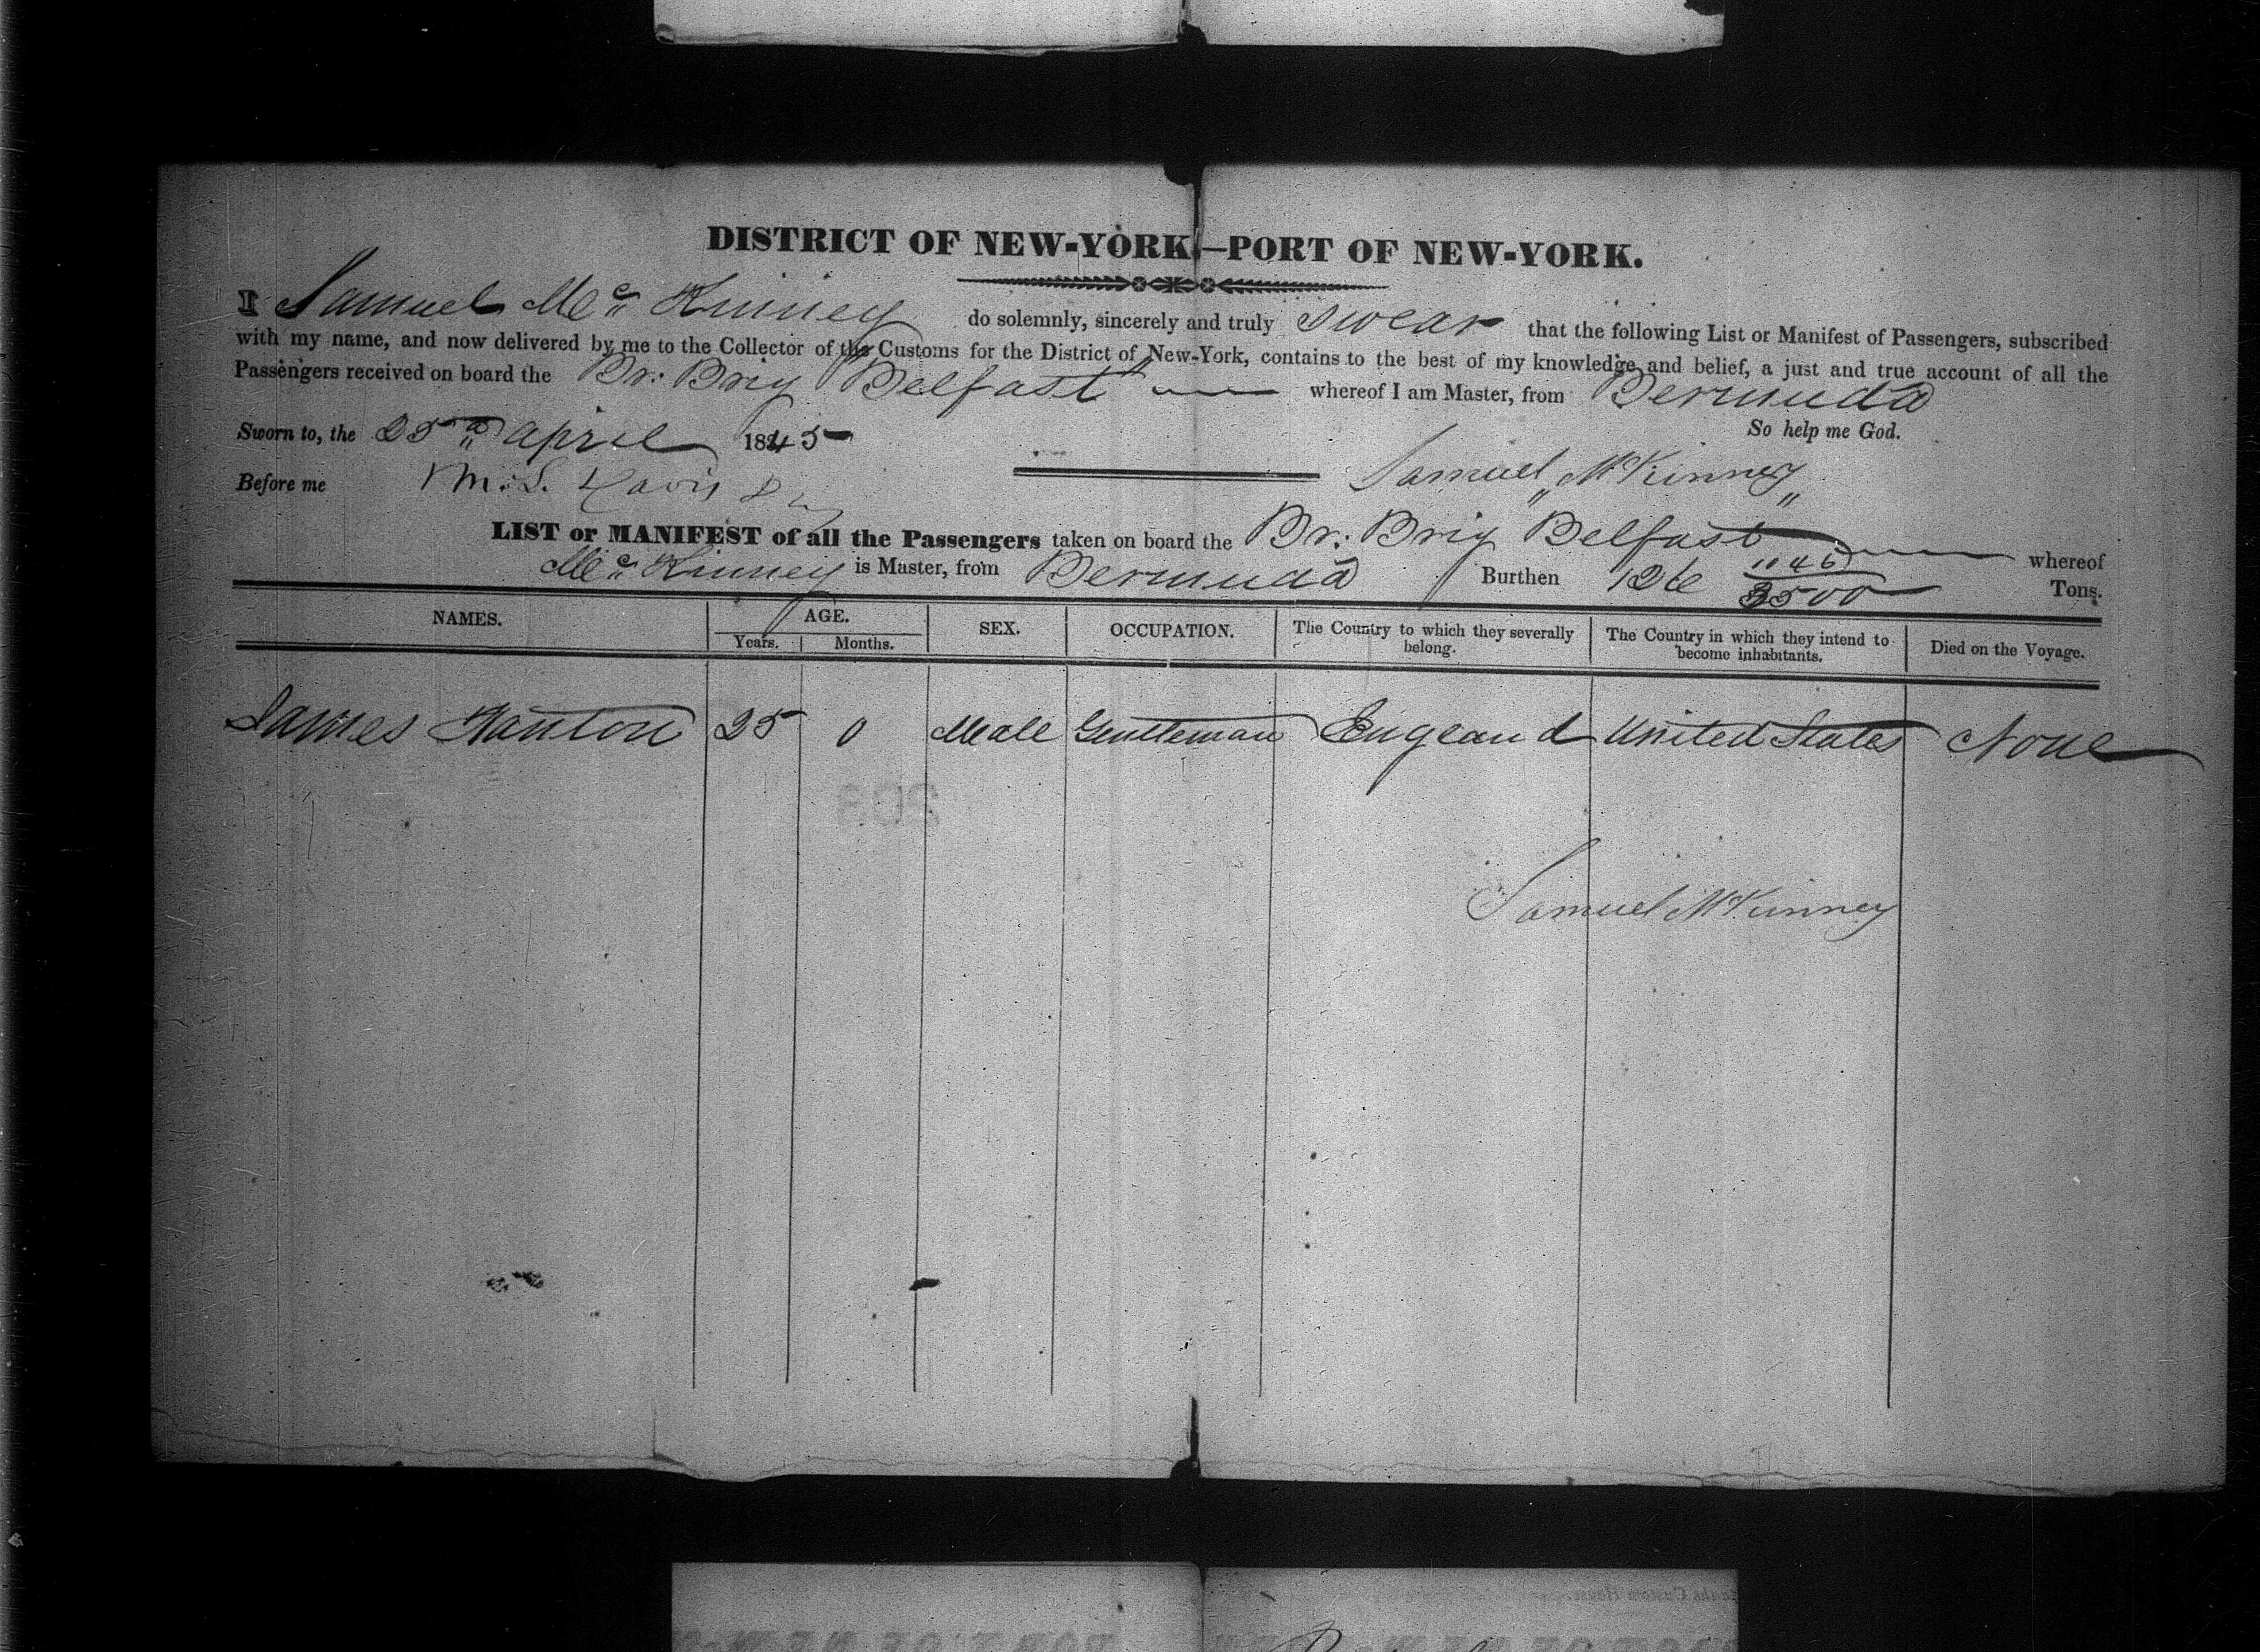 DISTRICT OF NEW-YORK—PORT OF NEW-YORK.
I Samuel Mc Kinney do solemnly, sincerely and truly swear that the following List or Manifest of Passengers, subscribed
with my name, and now delivered by me to the Collector of the Customs for the District of New-York, contains to the best of my knowledge and belief, a just and true account of all the
Passengers received on board the Br: Brig Belfast whereof I am Master, from Bermuda
Sworn to, the 25th april 1845 So help me God.
Before me M. L. Davis Samuel McKinney
LIST or MANIFEST of all the Passengers taken on board the Br: Brig Belfast whereof
Mc Kinney is Master, from Bermuda Burthen 126 1046/3500 Tons.
NAMES. AGE. SEX. OCCUPATION. The Country to which they severally belong. The Country in which they intend to become inhabitants. Died on the Voyage.
Years. Months.
James Hanton 25 0 Male Gentleman England United States None
203
Samuel McKinney